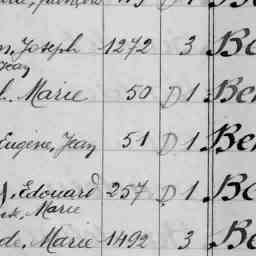 Joseph 1272 3 Be
Jean
Marie 50 D 1 Ber
Eugène, Jean 51 D 1 Ber
Edouard 257 D 1 Be
Marie
de, Marie 1492 3 Be